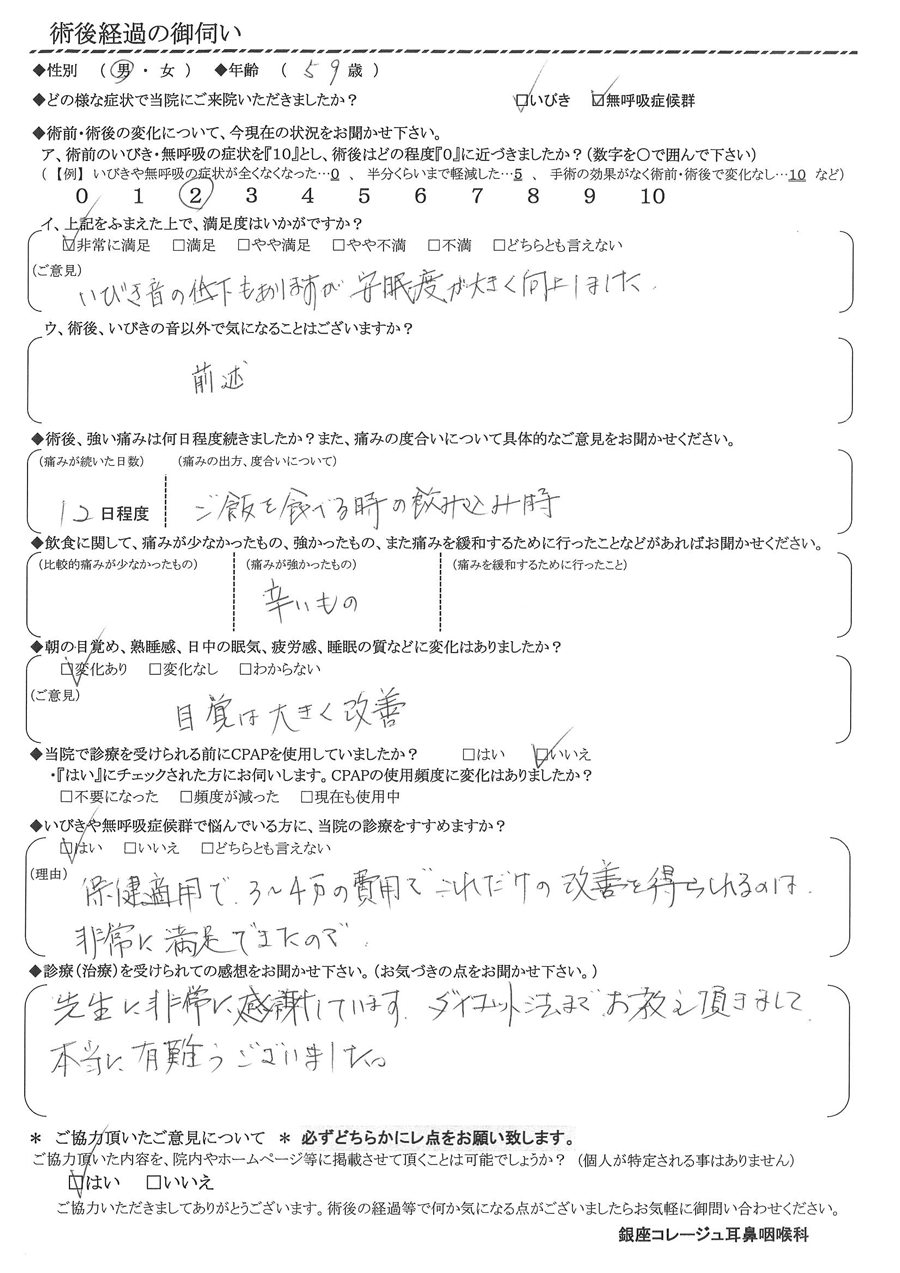 術後経過の御伺い
◆性別 （ 男 ・ 女 ） ◆年齢 （ 59 歳 ）
◆どの様な症状で当院にご来院いただきましたか？ ☑いびき ☑無呼吸症候群
◆術前・術後の変化について、今現在の状況をお聞かせ下さい。
ア、術前のいびき・無呼吸の症状を『10』とし、術後はどの程度『0』に近づきましたか？（数字を○で囲んで下さい）
（ 【例】 いびきや無呼吸の症状が全くなくなった…0 、 半分くらいまで軽減した…5 、 手術の効果がなく術前・術後で変化なし…10 など）
0 1 2 3 4 5 6 7 8 9 10
イ、上記をふまえた上で、満足度はいかがですか？
☑非常に満足 □満足 □やや満足 □やや不満 □不満 □どちらとも言えない
（ご意見）
いびき音の低下もありますが 安眠度が大きく向上しました.
ウ、術後、いびきの音以外で気になることはございますか？
前述
◆術後、強い痛みは何日程度続きましたか？また、痛みの度合いについて具体的なご意見をお聞かせください。
（痛みが続いた日数） （痛みの出方、度合いについて）
12 日程度 ご飯を食べる時の飲み込み時
◆飲食に関して、痛みが少なかったもの、強かったもの、また痛みを緩和するために行ったことなどがあればお聞かせください。
（比較的痛みが少なかったもの） （痛みが強かったもの） （痛みを緩和するために行ったこと）
辛いもの
◆朝の目覚め、熟睡感、日中の眠気、疲労感、睡眠の質などに変化はありましたか？
☑変化あり □変化なし □わからない
（ご意見）
目覚は大きく改善
◆当院で診療を受けられる前にCPAPを使用していましたか？ □はい ☑いいえ
・『はい』にチェックされた方にお伺いします。CPAPの使用頻度に変化はありましたか？
□不要になった □頻度が減った □現在も使用中
◆いびきや無呼吸症候群で悩んでいる方に、当院の診療をすすめますか？
☑はい □いいえ □どちらとも言えない
（理由）
保健適用で、3〜4万の費用でこれだけの改善を得られるのは.
非常に満足できたので.
◆診療（治療）を受けられての感想をお聞かせ下さい。（お気づきの点をお聞かせ下さい。）
先生に非常に感謝しています. ダイエット法までお教え頂きまして
本当に有難うございました。
＊ ご協力頂いたご意見について ＊ 必ずどちらかにレ点をお願い致します。
ご協力頂いた内容を、院内やホームページ等に掲載させて頂くことは可能でしょうか？ （個人が特定される事はありません）
☑はい □いいえ
ご協力いただきましてありがとうございます。術後の経過等で何か気になる点がございましたらお気軽に御問い合わせください。
銀座コレージュ耳鼻咽喉科